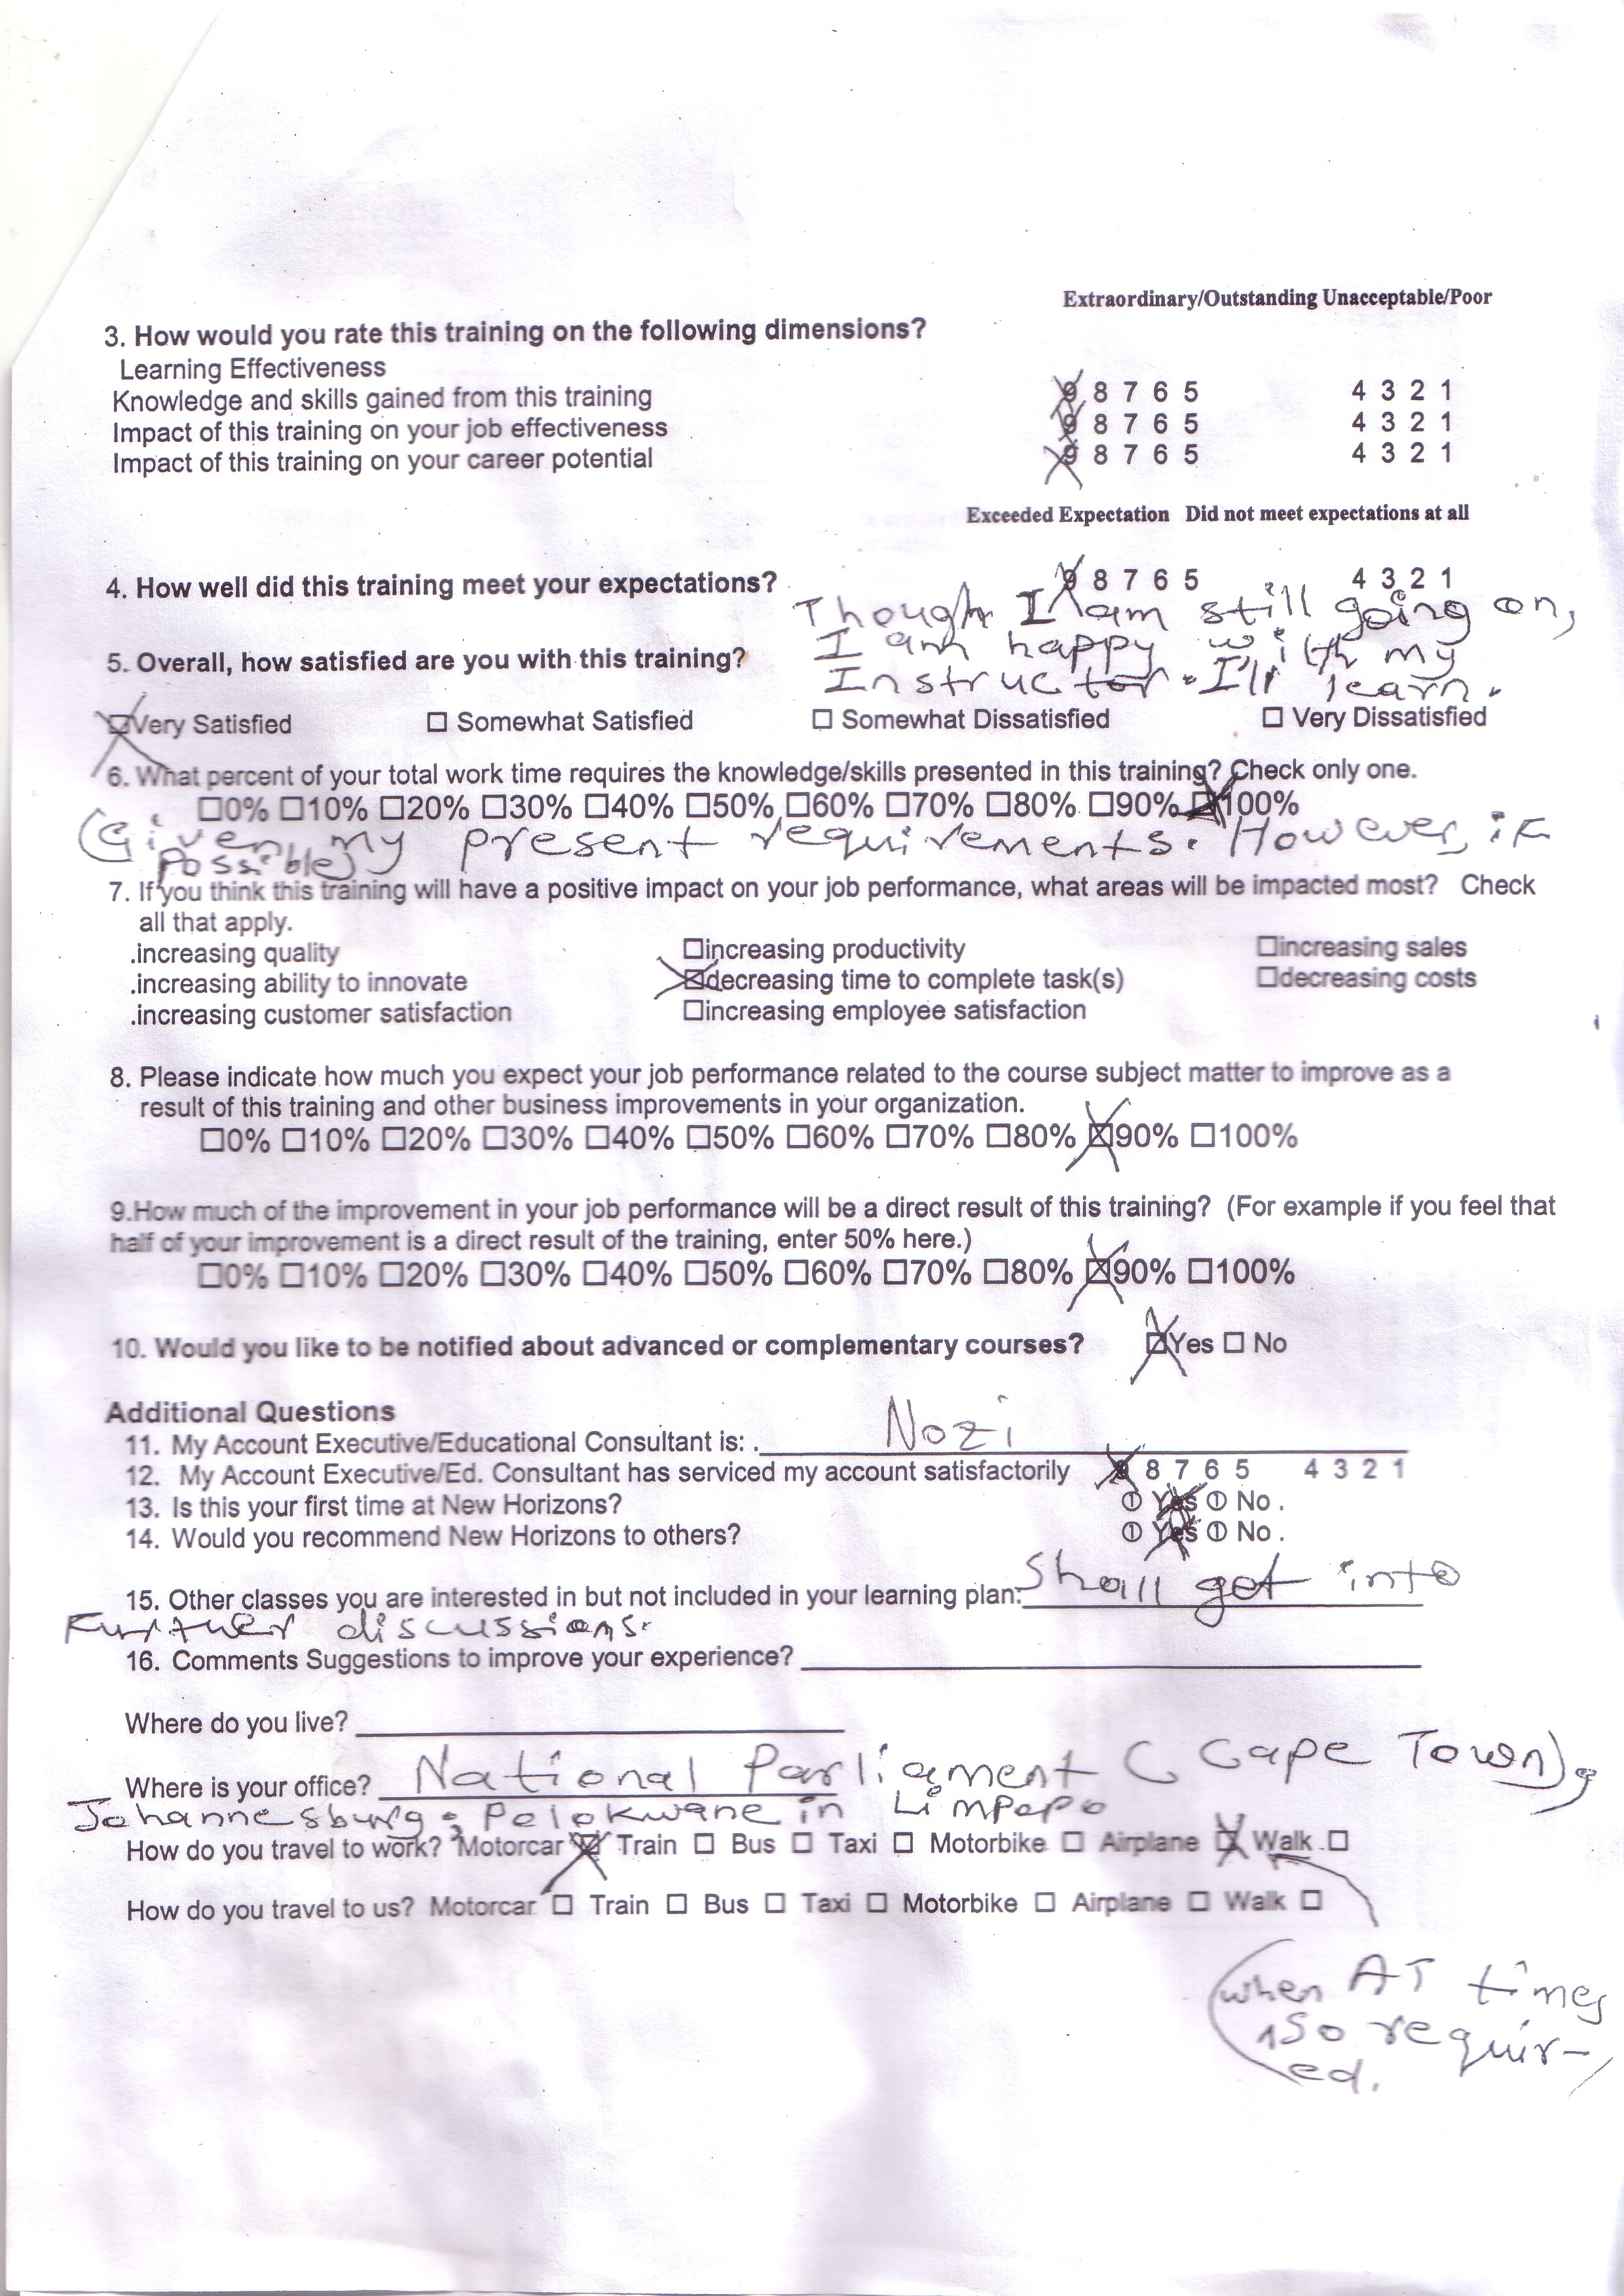 Extraordinary/Outstanding Unacceptable/Poor
3. How would you rate this training on the following dimensions?
Learning Effectiveness
Knowledge and skills gained from this training 9 8 7 6 5 4 3 2 1
Impact of this training on your job effectiveness 9 8 7 6 5 4 3 2 1
Impact of this training on your career potential 9 8 7 6 5 4 3 2 1
Exceeded Expectation Did not meet expectations at all
4. How well did this training meet your expectations? 9 8 7 6 5 4 3 2 1
Though I am still going on,
I am happy with my
5. Overall, how satisfied are you with this training?
Instructor. I'll learn.
☒Very Satisfied ☐ Somewhat Satisfied ☐ Somewhat Dissatisfied ☐ Very Dissatisfied
6. What percent of your total work time requires the knowledge/skills presented in this training? Check only one.
☐0% ☐10% ☐20% ☐30% ☐40% ☐50% ☐60% ☐70% ☐80% ☐90% ☒100%
(Given my present requirements. However, if
possible)
7. If you think this training will have a positive impact on your job performance, what areas will be impacted most? Check
all that apply.
.increasing quality ☐increasing productivity ☐increasing sales
.increasing ability to innovate ☒decreasing time to complete task(s) ☐decreasing costs
.increasing customer satisfaction ☐increasing employee satisfaction
8. Please indicate how much you expect your job performance related to the course subject matter to improve as a
result of this training and other business improvements in your organization.
☐0% ☐10% ☐20% ☐30% ☐40% ☐50% ☐60% ☐70% ☐80% ☒90% ☐100%
9.How much of the improvement in your job performance will be a direct result of this training? (For example if you feel that
half of your improvement is a direct result of the training, enter 50% here.)
☐0% ☐10% ☐20% ☐30% ☐40% ☐50% ☐60% ☐70% ☐80% ☒90% ☐100%
10. Would you like to be notified about advanced or complementary courses? ☒Yes ☐ No
Additional Questions
11. My Account Executive/Educational Consultant is: . Nozi
12. My Account Executive/Ed. Consultant has serviced my account satisfactorily 9 8 7 6 5 4 3 2 1
13. Is this your first time at New Horizons? ① Yes ① No .
14. Would you recommend New Horizons to others? ① Yes ① No .
15. Other classes you are interested in but not included in your learning plan: Shall get into
Further discussions.
16. Comments Suggestions to improve your experience?
Where do you live?
Where is your office? National Parliament (Cape Town),
Johannesburg; Polokwane in Limpopo
How do you travel to work? Motorcar ☒ Train ☐ Bus ☐ Taxi ☐ Motorbike ☐ Airplane ☒ Walk ☐
How do you travel to us? Motorcar ☐ Train ☐ Bus ☐ Taxi ☐ Motorbike ☐ Airplane ☐ Walk ☐
(when AT times
so requir-
ed.)